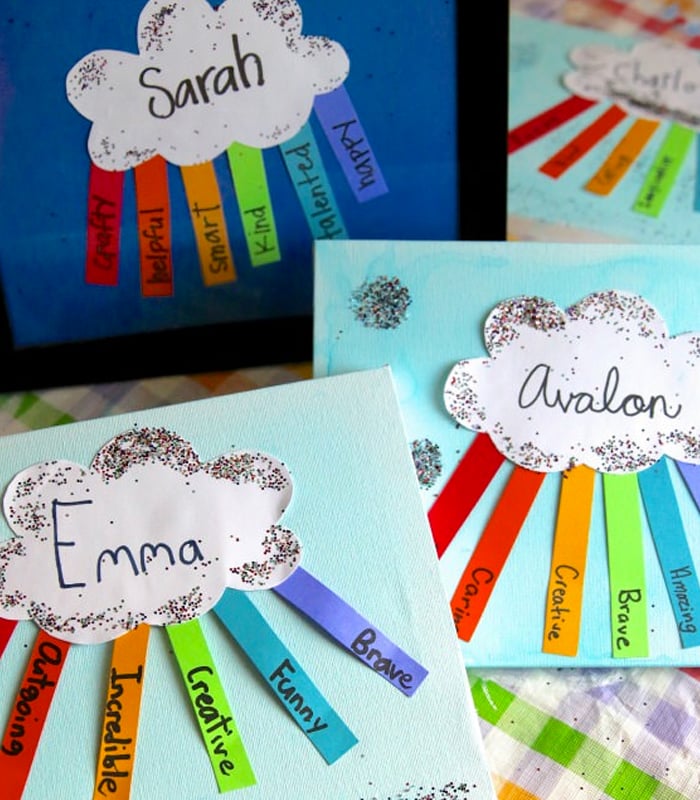 Sarah
crafty
helpful
smart
kind
talented
happy
Avalon
Creative
Brave
Amazing
Emma
Outgoing
Incredible
Creative
Funny
Brave